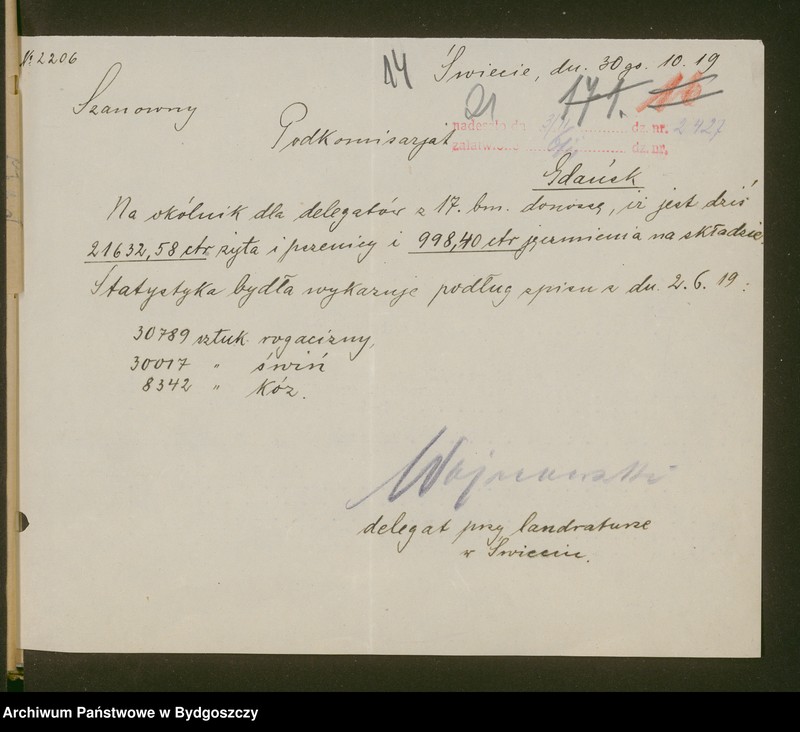 № 2206
14
Świecie, dn. 30 go. 10. 19
Szanowny
21
171.
16
Podkomisarjat
nadeszło dn. 3/11 dz. nr. 2427
załatwiono dz. nr.
Gdańsk
Na okólnik dla delegatów z 17. bm. donoszę, iż jest dziś
21632,58 ctr żyta i pszenicy i 998,40 ctr jęczmienia na składzie.
Statystyka bydła wykazuje podług spisu z dn. 2. 6. 19:
30789 sztuk rogacizny,
30017 " świń
8342 " kóz.
delegat przy landraturze
w Świeciu.
Archiwum Państwowe w Bydgoszczy